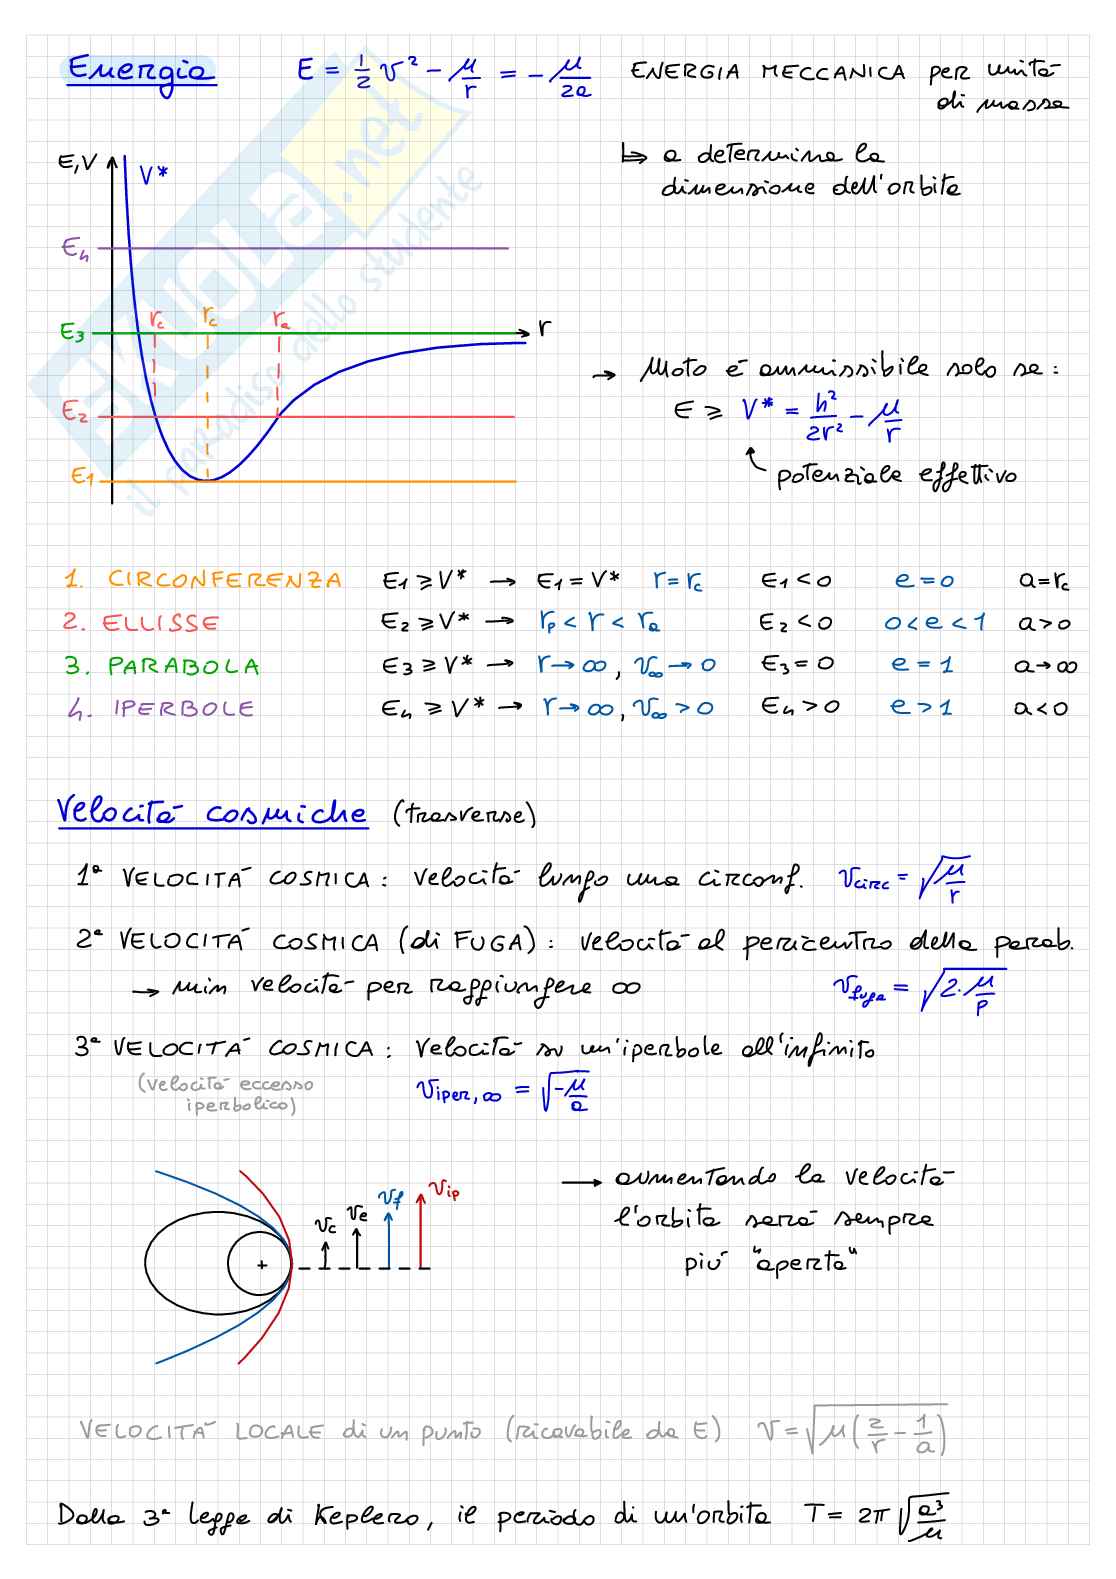 Energia E = 1/2 v² - μ/r = - μ/2a ENERGIA MECCANICA per unità
di massa
↳ a determina la
dimensione dell'orbita
E,V V*
E4
rc rc ra
E3 r
E2
E1
→ Moto è ammissibile solo se:
E ≥ V* = h²/2r² - μ/r
potenziale effettivo
1. CIRCONFERENZA E1 ≥ V* → E1 = V* r = rc E1 < 0 e = 0 a = rc
2. ELLISSE E2 ≥ V* → rp < r < ra E2 < 0 0 < e < 1 a > 0
3. PARABOLA E3 ≥ V* → r → ∞, v∞ → 0 E3 = 0 e = 1 a → ∞
4. IPERBOLE E4 ≥ V* → r → ∞, v∞ > 0 E4 > 0 e > 1 a < 0
Velocità cosmiche (trasverse)
1ª VELOCITÀ COSMICA: velocità lungo una circonf. vcirc = √(μ/r)
2ª VELOCITÀ COSMICA (di FUGA): velocità al pericentro della parab.
→ min velocità per raggiungere ∞ vfuga = √(2·μ/p)
3ª VELOCITÀ COSMICA: velocità su un'iperbole all'infinito
(velocità eccesso
iperbolico)
viper,∞ = √(-μ/a)
vc ve vf vip
→ aumentando la velocità
l'orbita sarà sempre
più "aperta"
VELOCITÀ LOCALE di un punto (ricavabile da E) v = √(μ(2/r - 1/a))
Dalla 3ª legge di Keplero, il periodo di un'orbita T = 2π √(a³/μ)
SKUOLA.net
il paradiso dello studente